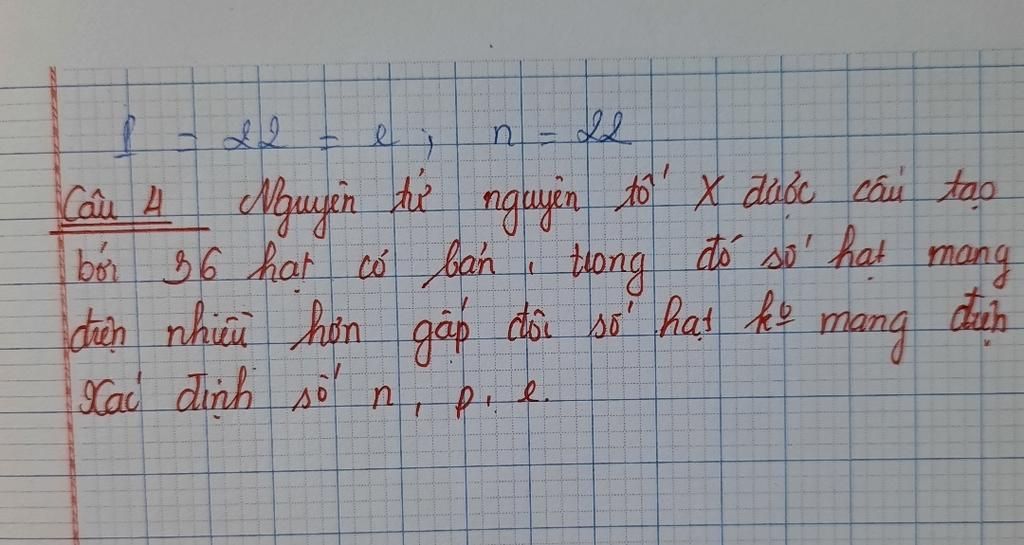 P = 22 = e ; n = 22
Câu 4 Nguyên tử nguyên tố X được cấu tạo
bởi 36 hạt cơ bản, trong đó số hạt mang
điện nhiều hơn gấp đôi số hạt kº mang điện
Xác định số n, p, e.